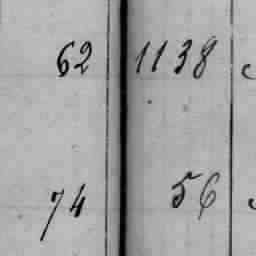 62 1138
74 56